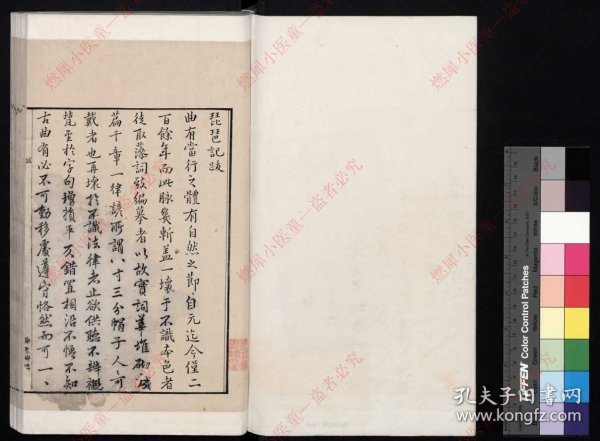 琵琶記跋
曲有當行之體有自然之節自元迄今僅二
百餘年而此脉㡬斬盖一壞于不識本色者
徒取藻詞致編摹者以故實詞華堆砌成
篇千章一律諺所謂八寸三分帽子人人可
戴者也再壞於不識法律者止欲供聽不辨
至於字句增損平仄錯置相沿不悟不知
古曲有必不可動移處遵守恪然而可一一
燃犀小医童一盗者必究
TIFFEN Color Control Patches
Black
3/Color
White
Magenta
Red
Yellow
Green
Cyan
Blue
孔夫子旧书网
www.kongfz.com